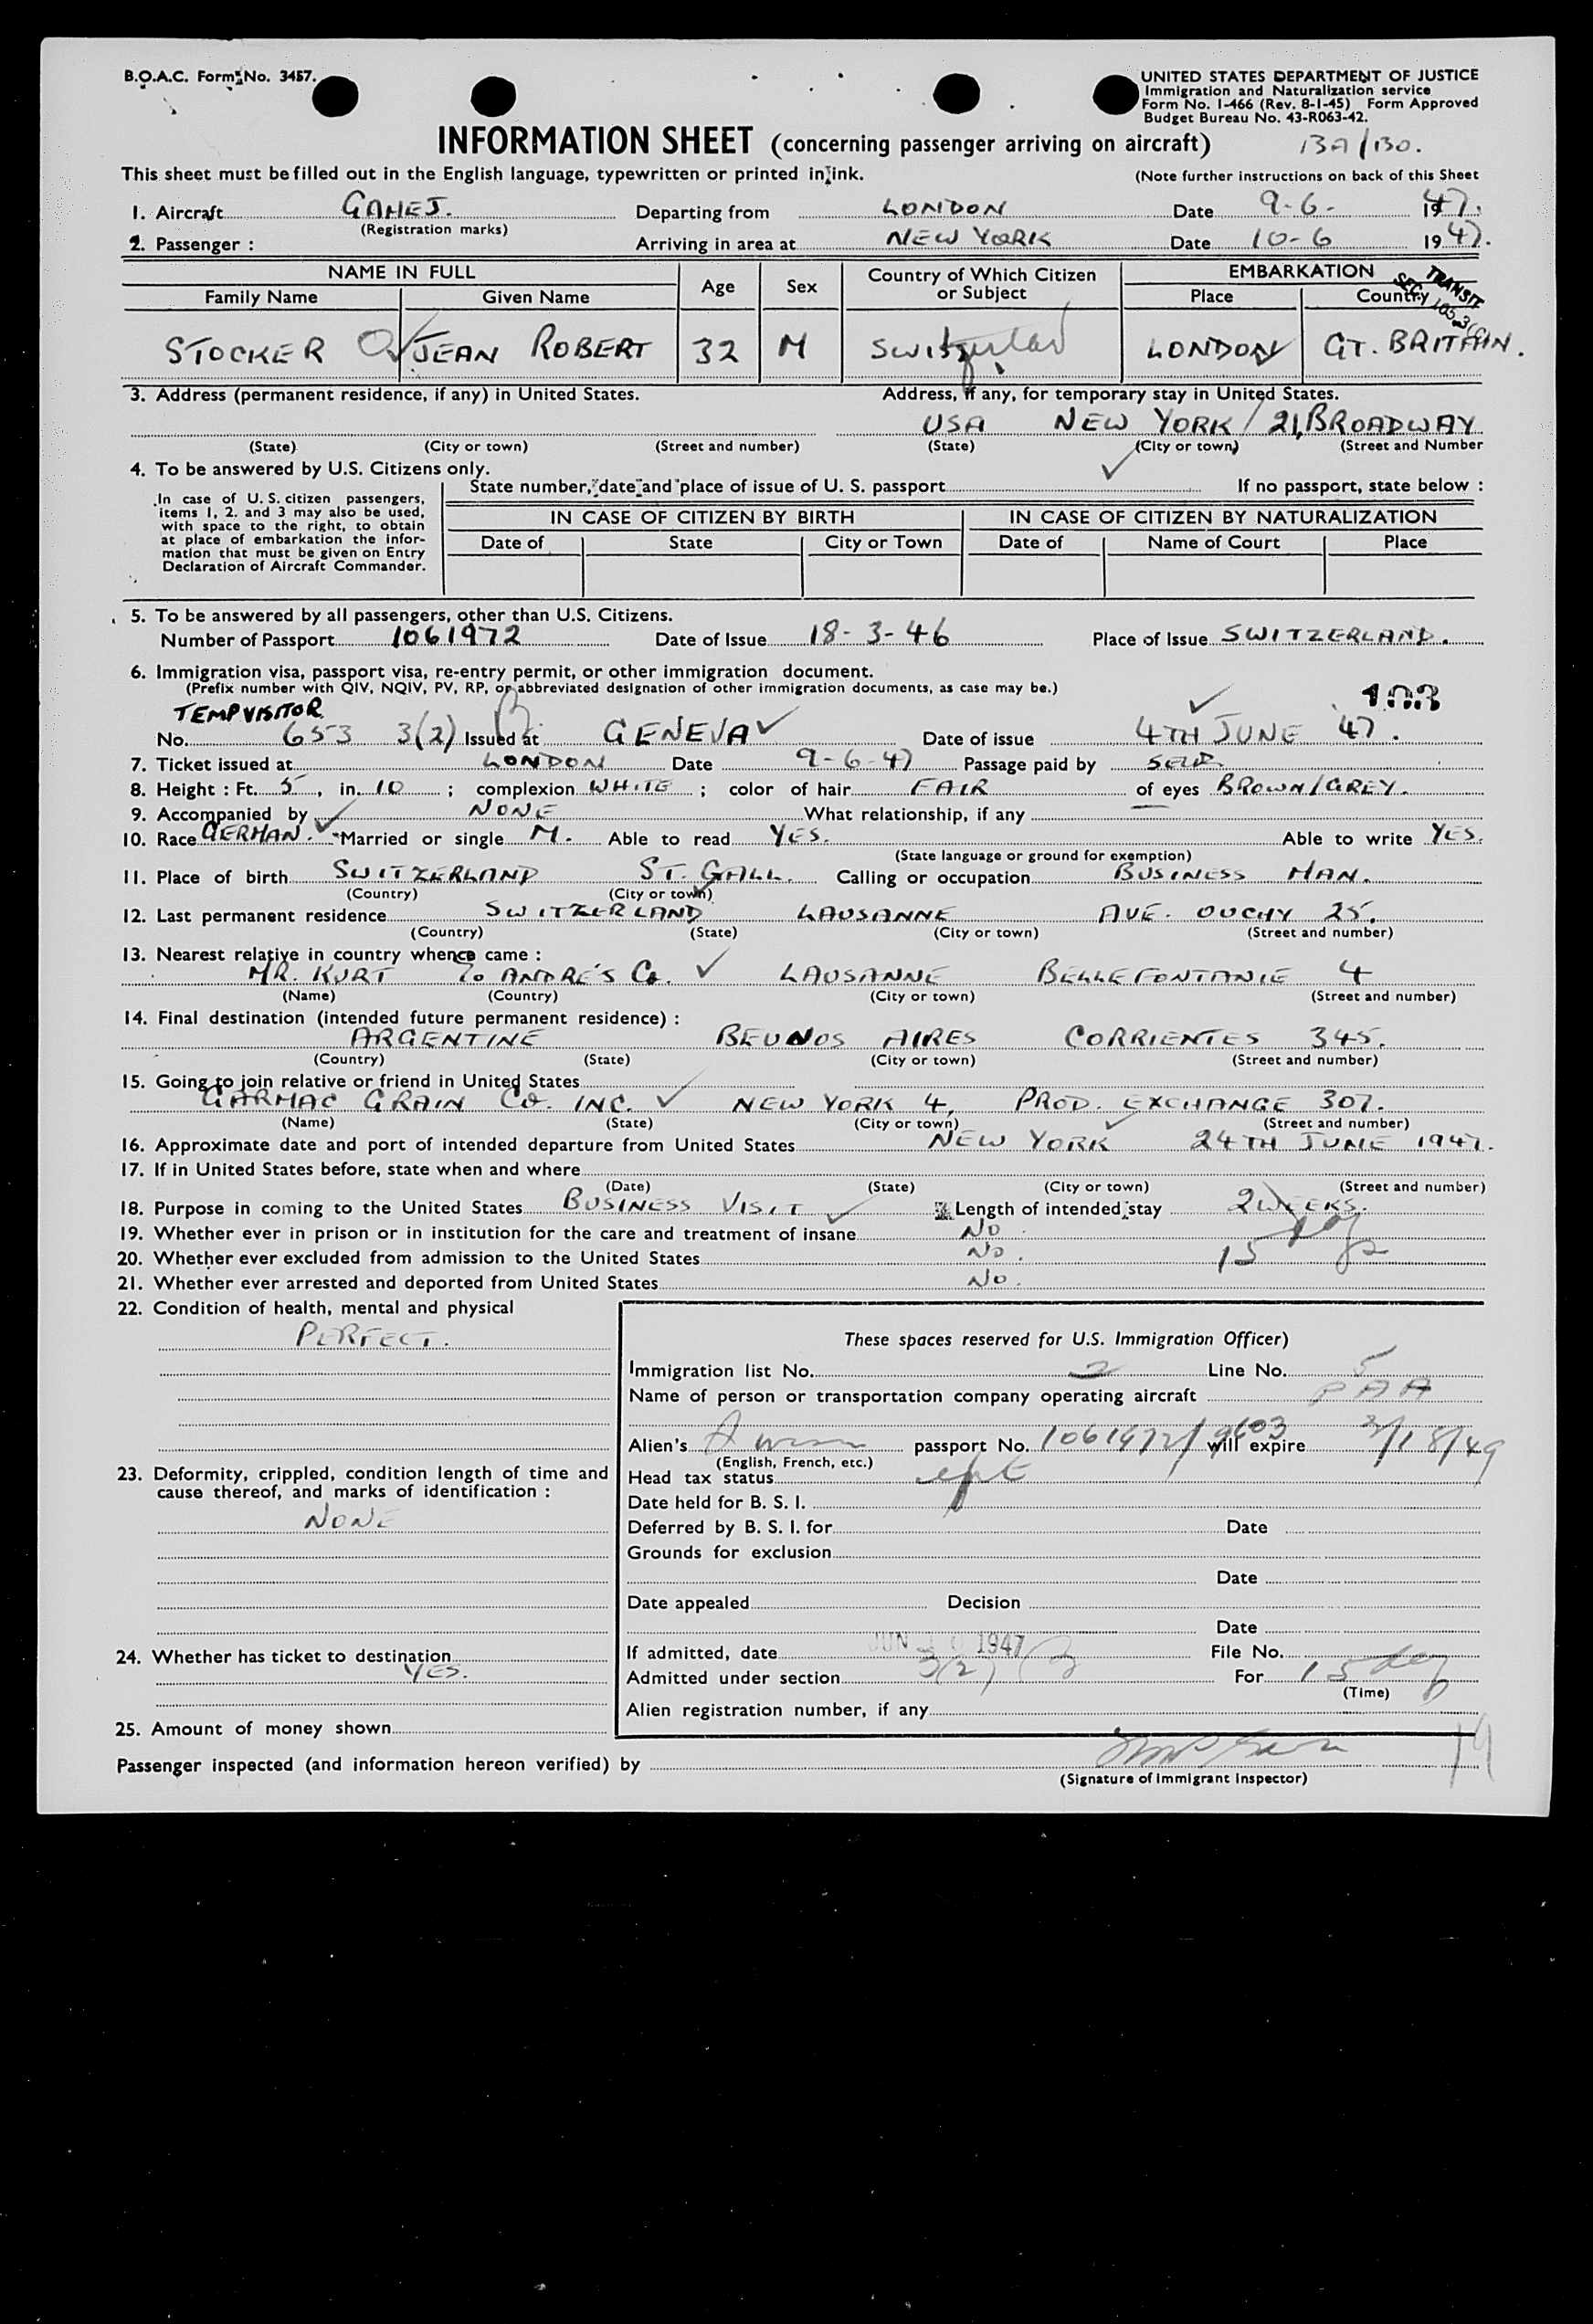 B.O.A.C. Form No. 3457.
UNITED STATES DEPARTMENT OF JUSTICE
Immigration and Naturalization service
Form No. I-466 (Rev. 8-1-45) Form Approved
Budget Bureau No. 43-R063-42.
INFORMATION SHEET (concerning passenger arriving on aircraft) BA/BO.
This sheet must be filled out in the English language, typewritten or printed in ink. (Note further instructions on back of this Sheet
1. Aircraft GAHEJ. Departing from LONDON Date 9-6- 1947.
(Registration marks)
2. Passenger : Arriving in area at NEW YORK Date 10-6 1947.
NAME IN FULL Age Sex Country of Which Citizen or Subject EMBARKATION
Family Name Given Name Place Country
TRANSIT
SEC.
STOCKER JEAN ROBERT 32 M Switzerland LONDON GT. BRITAIN.
3. Address (permanent residence, if any) in United States. Address, if any, for temporary stay in United States.
USA NEW YORK / 21, BROADWAY
(State) (City or town) (Street and number) (State) (City or town) (Street and Number
4. To be answered by U.S. Citizens only.
In case of U. S. citizen passengers, items 1, 2. and 3 may also be used, with space to the right, to obtain at place of embarkation the information that must be given on Entry Declaration of Aircraft Commander.
State number, date and place of issue of U. S. passport If no passport, state below :
IN CASE OF CITIZEN BY BIRTH IN CASE OF CITIZEN BY NATURALIZATION
Date of State City or Town Date of Name of Court Place
5. To be answered by all passengers, other than U.S. Citizens.
Number of Passport 1061972 Date of Issue 18-3-46 Place of Issue SWITZERLAND.
6. Immigration visa, passport visa, re-entry permit, or other immigration document.
(Prefix number with QIV, NQIV, PV, RP, or abbreviated designation of other immigration documents, as case may be.)
TEMP VISITOR 103
No. 653 3(2) Issued at GENEVA Date of issue 4TH JUNE 47.
7. Ticket issued at LONDON Date 9-6-47 Passage paid by SELF.
8. Height : Ft. 5, in. 10 ; complexion WHITE ; color of hair FAIR of eyes BROWN/GREY.
9. Accompanied by NONE What relationship, if any
10. Race GERMAN. Married or single M. Able to read YES. Able to write YES.
(State language or ground for exemption)
11. Place of birth SWITZERLAND ST. GALL. Calling or occupation BUSINESS MAN.
(Country) (City or town)
12. Last permanent residence SWITZERLAND LAUSANNE AVE. OUCHY 25.
(Country) (State) (City or town) (Street and number)
13. Nearest relative in country whence came :
MR. KURT c/o ANDRE'S Co. LAUSANNE BELLEFONTANIE 4
(Name) (Country) (City or town) (Street and number)
14. Final destination (intended future permanent residence) :
ARGENTINE BEUNOS AIRES CORRIENTES 345.
(Country) (State) (City or town) (Street and number)
15. Going to join relative or friend in United States
GARMAC GRAIN Co. INC. NEW YORK 4, PROD. EXCHANGE 307.
(Name) (State) (City or town) (Street and number)
16. Approximate date and port of intended departure from United States NEW YORK 24TH JUNE 1947.
17. If in United States before, state when and where
(Date) (State) (City or town) (Street and number)
18. Purpose in coming to the United States BUSINESS VISIT Length of intended stay 2 WEEKS.
19. Whether ever in prison or in institution for the care and treatment of insane No
20. Whether ever excluded from admission to the United States No. 15
21. Whether ever arrested and deported from United States No.
22. Condition of health, mental and physical
PERFECT.
These spaces reserved for U.S. Immigration Officer)
Immigration list No. 2 Line No. 5
Name of person or transportation company operating aircraft PAA
Alien's Swiss passport No. 1061972/9603 will expire 3/18/49
(English, French, etc.)
23. Deformity, crippled, condition length of time and cause thereof, and marks of identification :
NONE
Head tax status
Date held for B. S. I.
Deferred by B. S. I. for Date
Grounds for exclusion
Date
Date appealed Decision
Date
24. Whether has ticket to destination
YES.
If admitted, date JUN 10 1947 File No.
Admitted under section 3(2) For 15 days
(Time)
Alien registration number, if any
25. Amount of money shown
Passenger inspected (and information hereon verified) by
(Signature of Immigrant Inspector)